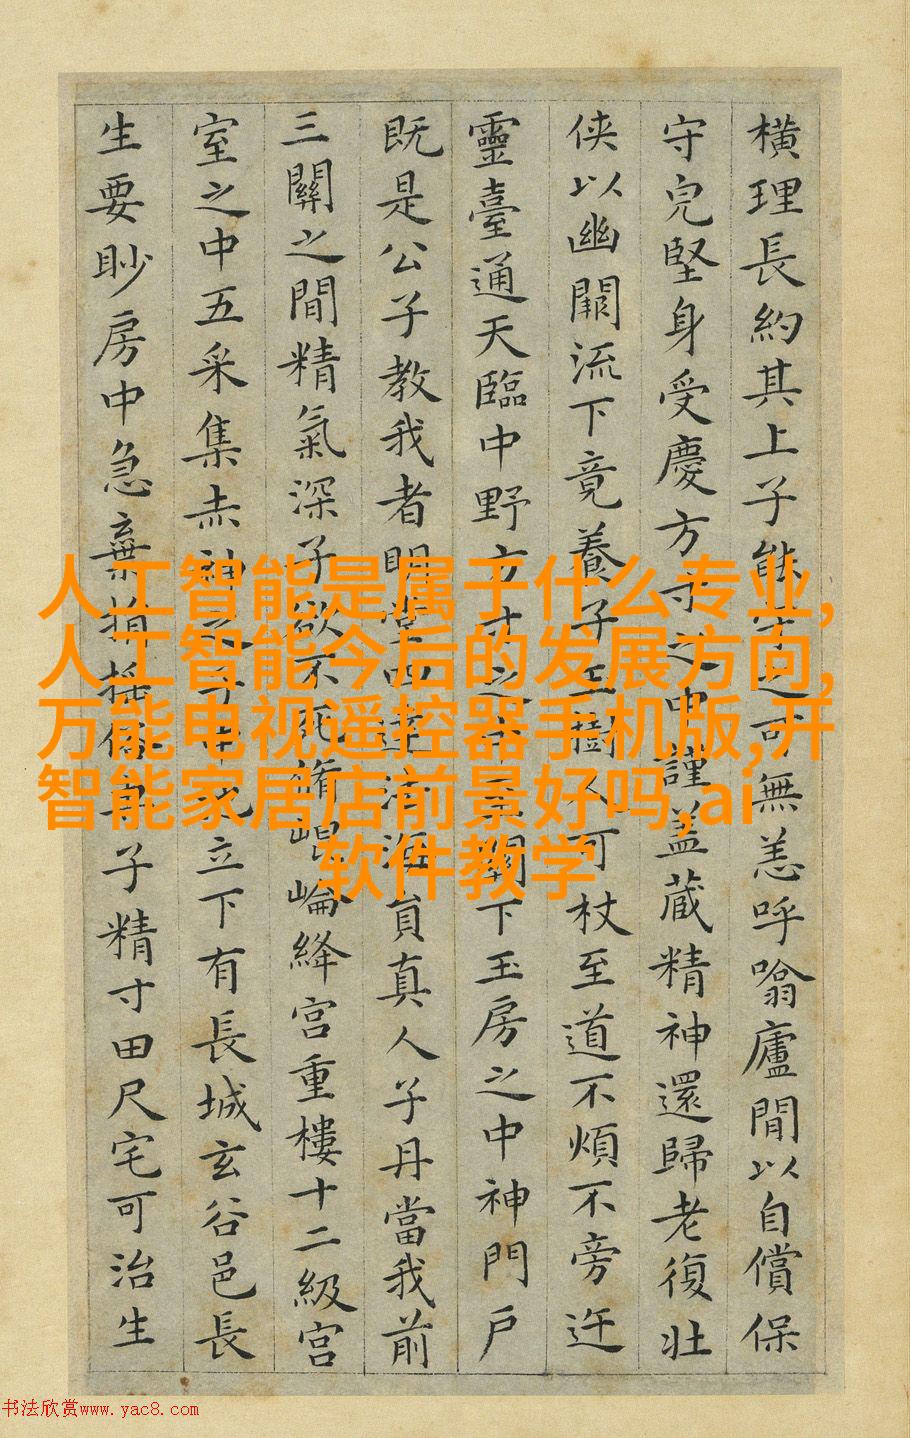 橫理長約其上子能守之可無恙呼噏廬間以自償保
守完堅身受慶方寸之中謹蓋藏精神還歸老復壯
俠以幽闕流下竟養子玉樹不可杖至道不煩不旁迕
靈臺通天臨中野方寸之中至關下玉房之中神門戶
既是公子教我者明堂四達法海員真人子丹當我前
三關之間精氣深子欲不死脩崐崘絳宮重樓十二級宮
室之中五采集赤神之子中池立下有長城玄谷邑長
生要眇房中急棄捐搖俗專子精寸田尺宅可治生
人工智能是属于什么专业,
人工智能今后的发展方向,
万能电视遥控器手机版,开
智能家居店前景好吗,ai
软件教学
书法欣赏www.yac8.com